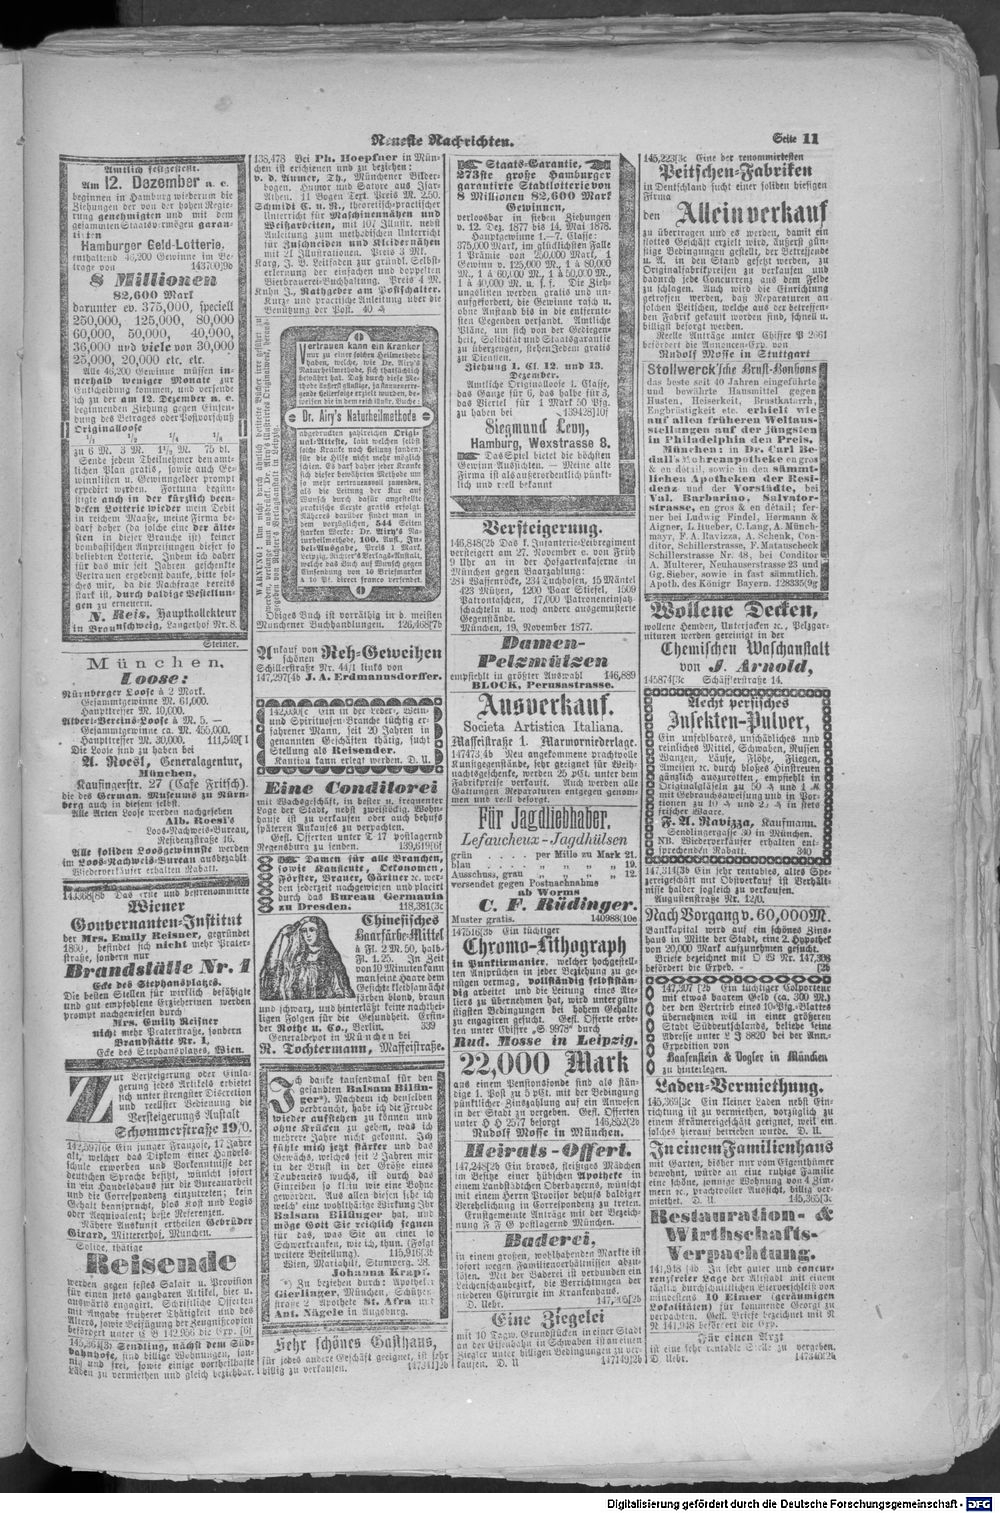 Neueste Nachrichten.
Seite 11
Amtlich festgestellt.
Am 12. Dezember a. c.
beginnen in Hamburg wiederum die
Ziehungen der von der hohen Regie-
rung genehmigten und mit dem
gesammten Staatsvermögen garan-
tirten
Hamburger Geld-Lotterie,
enthaltend 46,200 Gewinne im Be-
trage von 143700[9b
8 Millionen
82,600 Mark
darunter ev. 375,000, speciell
250,000, 125,000, 80,000
60,000, 50,000, 40,000,
36,000 und viele von 30,000
25,000, 20,000 etc. etc.
Alle 46,200 Gewinne müssen in-
nerhalb weniger Monate zur
Entscheidung kommen, und versende
ich zu der am 12. Dezember a. c.
beginnenden Ziehung gegen Einsen-
dung des Betrages oder Postvorschuß
Originalloose
1/1 1/2 1/4 1/8
zu 6 M. 3 M. 1½ M. 75 Pf.
Sende jedem Theilnehmer den amt-
lichen Plan gratis, sowie auch Ge-
winnlisten u. Gewinngelder prompt
expedirt werden. Fortuna begün-
stigte auch in der kürzlich been-
deten Lotterie wieder mein Debit
in reichem Maaße, meine Firma be-
darf daher (da solche eine der älte-
sten in dieser Branche ist) keiner
bombastischen Anpreisungen dieser so
beliebten Lotterie. Indem ich daher
für das mir seit Jahren geschenkte
Vertrauen ergebenst danke, bitte sol-
ches mir, da die Nachfrage bereits
stark ist, durch baldige Bestellun-
gen zu erneuern.
N. Reis, Hauptkollekteur
in Braunschweig, Langerhof Nr. 8.
Steiner.
München,
Loose:
Nürnberger Loose à 2 Mark.
Gesammtgewinne M. 61,000.
Haupttreffer M. 10,000.
Albert-Vereins-Loose à M. 5. —
Gesammtgewinne ca. M. 455,000.
Haupttreffer M. 30,000. 111,549[
Die Loose sind zu haben bei
A. Roesl, Generalagentur,
München,
Kaufingerstr. 27 (Cafe Fritsch).
die des German. Museums zu Nürn-
berg auch in diesem selbst.
Alle Arten Loose werden nachgesehen
Alb. Roesl's
Loos-Nachweis-Bureau,
Residenzstraße 16.
Alle soliden Loosgewinnste werden
im Loos-Nachweis-Bureau ausbezahlt.
Wiederverkäufer erhalten Rabatt.
143368[8b Das erste und bestrenommirte
Wiener
Gouvernanten-Institut
der Mrs. Emily Reisner, gegründet
1860, befindet sich nicht mehr Prater-
straße, sondern nur
Brandstätte Nr. 1
Ecke des Stephansplatzes.
Die besten Stellen für wirklich befähigte
und gut empfohlene Erzieherinen werden
prompt nachgewiesen durch
Mrs. Emily Reisner
nicht mehr Praterstraße, sondern
Brandstätte Nr. 1,
Ecke des Stephansplatzes, Wien.
Zur Versteigerung oder Einla-
gerung jedes Artikels erbietet
sich unter strengster Discretion
und reellster Bedienung die
Versteigerungs Anstalt
Schommerstraße 19/0.
142,597[6e Ein junger Franzose, 17 Jahre
alt, welcher das Diplom einer Handels-
schule erworben und Vorkenntnisse der
deutschen Sprache besitzt, wünscht sofort
in ein Handelshaus für die Bureauarbeit
und die Correspondenz einzutreten; kein
Gehalt beansprucht, blos Kost und Logis
oder Aequivalent; beste Referenzen.
Nähere Auskunft ertheilen Gebrüder
Girard, Mittererhof, München.
Solide, thätige
Reisende
werden gegen festes Salair u. Provision
für einen stets gangbaren Artikel, hier u.
auswärts engagirt. Schriftliche Offerten
mit Angabe früherer Thätigkeit und des
Alters, sowie Beifügung der Zeugnißcopien
befördert unter C B 142,956 die Exp. [6f
145,364[3b Sendling, nächst dem Süd-
bahnhofe, sind billige Wohnungen, son-
nig und frei, sowie einige vortheilhafte
Läden zu vermiethen und gleich beziehbar.
138,478 Bei Ph. Hoepfner in Mün-
chen ist erschienen und zu beziehen:
v. d. Aumer, Th., Münchener Bilder-
bogen. Humor und Satyre aus Isar-
Athen. 11 Bogen Text. Preis M. 2.50.
Schmidt C. u. R., theoretisch-practischer
Unterricht für Maschinennähen und
Weißarbeiten, mit 107 Illustr. nebst
Anleitung zum methodischen Unterricht
für Zuschneiden und Kleidernähen
mit 21 Illustrationen. Preis 3 Mk.
Karg, J. B. Leitfaden zur gründl. Selbst-
erlernung der einfachen und doppelten
Bierbrauerei-Buchhaltung. Preis 4 M.
Kuhn J., Rathgeber am Postschalter.
Kurze und practische Anleitung über die
Benützung der Post. 40 ₰
Vertrauen kann ein Kranker
nur zu einer solchen Heilmethode
haben, welche, wie Dr. Airy's
Naturheilmethode, sich thatsächlich
bewährt hat. Daß durch diese Me-
thode äußerst günstige, ja staunenerre-
gende Heilerfolge erzielt wurden, be-
weisen die in dem reich illustr. Buche:
Dr. Airy's Naturheilmethode
abgedruckten zahlreichen Origi-
nal-Atteste, laut welchen selbst
solche Kranke noch Heilung fanden,
für die Hilfe nicht mehr möglich
schien. Es darf daher jeder Kranke
sich dieser bewährten Methode um
so mehr vertrauensvoll zuwenden,
als die Leitung der Kur auf
Wunsch durch dafür angestellte
practische Aerzte gratis erfolgt.
Näheres darüber findet man in
dem vorzüglichen, 544 Seiten
starken Werke: Dr. Airy's Na-
turheilmethode, 100. Aufl., Ju-
bel-Ausgabe, Preis 1 Mark,
Leipzig, Richter's Verlags-Anstalt,
welche das Buch auf Wunsch gegen
Einsendung von 10 Briefmarken
à 10 Pf. direct franco versendet.
Obiges Buch ist vorräthig in d. meisten
Münchener Buchhandlungen. 126,468[7b
Ankauf von schönen Reh-Geweihen
Schillerstraße Nr. 44/1 links von
147,297[4b J. A. Erdmannsdorffer.
142,030[c Ein in der Leder-, Wein-
und Spirituosen-Branche tüchtig er-
fahrener Mann, seit 20 Jahren in
genannten Geschäften thätig, sucht
Stellung als Reisender.
Kaution kann erlegt werden. D. U.
Eine Conditorei
mit Wachsgeschäft, in bester u. frequenter
Lage der Stadt, nebst zweistöckig. Wohn-
hause ist zu verkaufen oder auch behufs
späteren Ankaufes zu verpachten.
Gefl. Offerten unter T 17 postlagernd
Regensburg zu senden. 139,619[6f
Damen für alle Branchen,
sowie Kaufleute, Oeconomen,
Förster, Brauer, Gärtner ꝛc. wer-
den jederzeit nachgewiesen und placirt
durch das Bureau Germania
zu Dresden. 118,381[3c
Chinesisches
Haarfärbe-Mittel
à Fl. M. 2.50, halb-
Fl. 1.25. In Zeit
von 10 Minuten kann
man seine Haare dem
Gesicht kleidsam ächt
färben blond, braun
und schwarz, und hinterläßt keine nachthei-
ligen Folgen für die Gesundheit. Erfin-
der Rothe u. Co., Berlin. 339
Generaldepot in München bei
R. Tochtermann, Maffeistraße.
Ich danke tausendmal für den
gesandten Balsam Bilfin-
ger*). Nachdem ich denselben
verbraucht, habe ich die Freude
wieder aufstehen zu können und
ohne Krücken zu gehen, was ich
mehrere Jahre nicht gekonnt. Ich
fühle mich jetzt stärker und das
Gewächs, welches seit 2 Jahren mir
in der Brust in der Größe eines
Taubeneies wuchs, ist durch das
Einreiben so klein wie eine Bohne
geworden. Aus allen diesen sehe ich
welch' eine wohlthätige Wirkung Ihr
Balsam Bilfinger hat, und
möge Gott Sie reichlich segnen
für das, was Sie an einer so
Schwerkranken, wie ich, thun. (Folgt
weitere Bestellung). 115,916[3b
Wien, Mariahilf, Stumperg. 28.
Johanna Krapf.
*) Zu beziehen durch: Apotheker
Gierlinger, München, Schützen-
straße 2 Apotheke St. Afra und
Ant. Nägele in Augsburg.
Sehr schönes Gasthaus,
für jedes andere Geschäft geeignet, ist sehr
billig zu verkaufen. 147341]2b
Staats-Garantie.
273ste große Hamburger
garantirte Stadtlotterie von
8 Millionen 82,600 Mark
Gewinnen,
verloosbar in sieben Ziehungen
v. 12. Dez. 1877 bis 14. Mai 1878.
Hauptgewinne 1.—7. Classe:
375,000 Mark, im glücklichsten Falle
1 Prämie von 250,000 Mark, 1
Gewinn v. 125,000 M., 1 à 80,000
M., 1 à 60,000 M., 1 à 50,000 M.,
1 à 40,000 M. u. s. f. Die Zieh-
ungslisten werden gratis und un-
aufgefordert, die Gewinne rasch u.
ohne Anstand bis in die entfernte-
sten Gegenden versandt. Amtliche
Pläne, um sich von der Gediegen-
heit, Solidität und Staatsgarantie
zu überzeugen, stehen Jedem gratis
zu Diensten.
Ziehung 1. Cl. 12. und 13.
Dezember.
Amtliche Originalloose 1. Classe,
das Ganze für 6, das halbe für 3,
das Viertel für 1 Mark 50 Pf.
zu haben bei 139428]10f
Siegmund Levy,
Hamburg, Wexstrasse 8.
Das Spiel bietet die höchsten
Gewinn Aussichten. — Meine alte
Firma ist als außerordentlich pünkt-
lich und reell bekannt
Versteigerung.
146,848(2b Das k. Infanterie-Leibregiment
versteigert am 27. November c. von Früh
9 Uhr an in der Hofgartenkaserne in
München gegen Baarzahlung:
284 Waffenröcke, 234 Tuchhosen, 15 Mäntel
423 Mützen, 1200 Paar Stiefel, 1509
Patrontaschen, 17,000 Patroneneinsatz-
schachteln u. noch andere ausgemusterte
Gegenstände.
München, 19. November 1877.
Damen-
Pelzmützen
empfiehlt in größter Auswahl 146,889
BLOCK, Perusastrasse.
Ausverkauf.
Societa Artistica Italiana.
Maffeistraße 1. Marmorniederlage.
147473,4b Neu angekommene prachtvolle
Kunstgegenstände, sehr geeignet für Weih-
nachtsgeschenke, werden 25 pCt. unter dem
Fabrikpreise verkauft. Auch werden alle
Gattungen Reparaturen entgegen genom-
men und reell besorgt.
Für Jagdliebhaber.
Lefaucheux-Jagdhülsen
grün . . . . per Mille zu Mark 21.
blau . . . . „ „ „ „ 19.
Ausschuss, grau „ „ „ „ 12.
versendet gegen Postnachnahme
ab Worms
C. F. Rüdinger.
Muster gratis. 140988(10e
147516[3b Ein tüchtiger
Chromo-Lithograph
in Punktirmanier, welcher hochgestell-
ten Ansprüchen in jeder Beziehung zu ge-
nügen vermag, vollständig selbststän-
dig arbeitet und die Leitung eines Ate-
liers zu übernehmen hat, wird untergün-
stigsten Bedingungen bei hohem Gehalte
zu engagiren gesucht. Gefl. Offerte erbe-
ten unter Chiffre „S 9978“ durch
Rud. Mosse in Leipzig.
22,000 Mark
aus einem Pensionsfonde sind als stän-
dige 1. Post zu 5 pCt. mit der Bedingung
pünktlicher Zinszahlung auf ein Anwesen
in der Stadt zu vergeben. Gefl. Offerten
unter H H 2577 befördert 145,852(2b
Rudolf Mosse in München.
Heirats-Offert.
147,248[2b Ein braves, fleißiges Mädchen
im Besitze einer hübschen Apotheke in
einem Landstädtchen Oberbayerns, wünscht
mit einem Herrn Provisor behufs baldiger
Verehelichung in Correspondenz zu treten.
Ernstgemeinte Anträge mit der Bezeich-
nung F F G postlagernd München.
Baderei,
in einem großen, wohlhabenden Markte ist
sofort wegen Familienverhältnissen abzu-
lösen. Mit der Baderei ist verbunden ein
Leichenschaubezirk, die Verrichtungen der
niederen Chirurgie im Krankenhause.
D. Uebr. 147,205[2b
Eine Ziegelei
mit 10 Tagw. Grundstücken in einer Stadt
an der Eisenbahn in Schwaben ist an einen
Ziegler unter billigen Bedingungen zu ver-
kaufen. D. U 147149]2b
145,223[3c Eine der renommirtesten
Peitschen-Fabriken
in Deutschland sucht einer soliden hiesigen
Firma
den Alleinverkauf
zu übertragen und es werden, damit ein
flottes Geschäft erzielt wird, äußerst gün-
stige Bedingungen gestellt, der Betreffende
u. A. in den Stand gesetzt werden, zu
Originalfabrikpreisen zu verkaufen und
dadurch jede Concurrenz aus dem Felde
zu schlagen. Auch wird die Einrichtung
getroffen werden, daß Reparaturen an
solchen Peitschen, welche aus der betreffen-
den Fabrik gekauft worden sind, schnell u.
billigst besorgt werden.
Reelle Anträge unter Chiffre P 2661
befördert die Annoncen-Exp. von
Rudolf Mosse in Stuttgart
Stollwerck'sche Brust-Bonbons
das beste seit 40 Jahren eingeführte
und bewährte Hausmittel gegen
Husten, Heiserkeit, Brustkatarrh,
Engbrüstigkeit etc. erhielt wie
auf allen früheren Weltaus-
stellungen auf der jüngsten
in Philadelphia den Preis.
München: in Dr. Carl Be-
dall's Mohrenapotheke en gros
& en détail, sowie in den sämmt-
lichen Apotheken der Resi-
denz und der Vorstädte, bei
Val. Barbarino, Salvator-
strasse, en gros & en détail; fer-
ner bei Ludwig Findel, Hermann &
Aigner, L. Hueber, C. Lang, A. Münch-
mayr, F. A. Ravizza, A. Schenk, Con-
ditor, Schillerstrasse, F. Matauscheck
Schillerstrasse Nr. 48, bei Conditor
A. Multerer, Neuhauserstrasse 23 und
Gg. Sieber, sowie in fast sämmtlich.
Apoth. des Königr Bayern. 128335[9g
Wollene Decken,
wollene Hemden, Unterjacken ꝛc., Pelzgar-
nituren werden gereinigt in der
Chemischen Waschanstalt
von J. Arnold,
145874[3c Schäfflerstraße 14.
Aecht persisches
Insekten-Pulver,
Ein unfehlbares, unschädliches und
reinliches Mittel, Schwaben, Russen
Wanzen, Läuse, Flöhe, Fliegen,
Ameisen ꝛc. durch bloßes Hinstreuen
gänzlich auszurotten, empfiehlt in
Originalgläseln zu 50 ₰ und 1 M
mit Gebrauchsanweisung und in Por-
tionen zu 10 ₰ und 20 ₰ in stets
frischer Waare.
F. A. Ravizza, Kaufmann.
Sendlingergasse 30 in München.
NB. Wiederverkäufer erhalten ent-
sprechenden Rabatt. 340
147,314[3b Ein sehr rentables, altes Spe-
zereigeschäft mit Obstverkauf ist Verhält-
nisse halber sogleich zu verkaufen.
Augustenstraße Nr. 12/0.
Nach Vorgang v. 60,000 M.
Bankkapital wird auf ein schönes Zins-
haus in Mitte der Stadt, eine 2. Hypothek
von 20,000 Mark aufzunehmen gesucht.
Briefe bezeichnet mit O W Nr. 147,308
befördert die Exped. [2b
147,307 [2b Ein tüchtiger Colporteur
mit etwas baarem Geld (ca. 300 M.)
der den Vertrieb eines 10-Pfg.-Blattes
übernehmen will in einer größeren
Stadt Süddeutschlands, beliebe seine
Adresse unter L J 8820 bei der Ann.-
Expedition von
Haasenstein & Vogler in München
zu hinterlegen.
Laden-Vermiethung.
145,369[3c Ein kleiner Laden nebst Ein-
richtung ist zu vermiethen, vorzüglich zu
einem Krämereigeschäft geeignet, weil ein
solches hierauf betrieben wurde. D. U.
In einem Familienhaus
mit Garten, bisher nur vom Eigenthümer
bewohnt, würde an eine ruhige Familie
eine schöne, sonnige Wohnung von 4 Zim-
mern ꝛc., prachtvoller Aussicht, billig ver-
miethet. D. U. 145,365[3c
Restauration- &
Wirthschafts-
Verpachtung.
141,948 [4b In sehr guter und concur-
renzfreier Lage der Altstadt mit einem
täglich durchschnittlichen Bierverschleiß von
mindestens 10 Eimer (geräumigen
Lokalitäten) für kommende Georgi zu
verpachten. Gefl. Briefe bezeichnet mit R
R 141,948 befördert die Exp.
Für einen Arzt
ist eine sehr rentable Stelle zu vergeben.
D. Uebr. 147340[2b
Digitalisierung gefördert durch die Deutsche Forschungsgemeinschaft - DFG